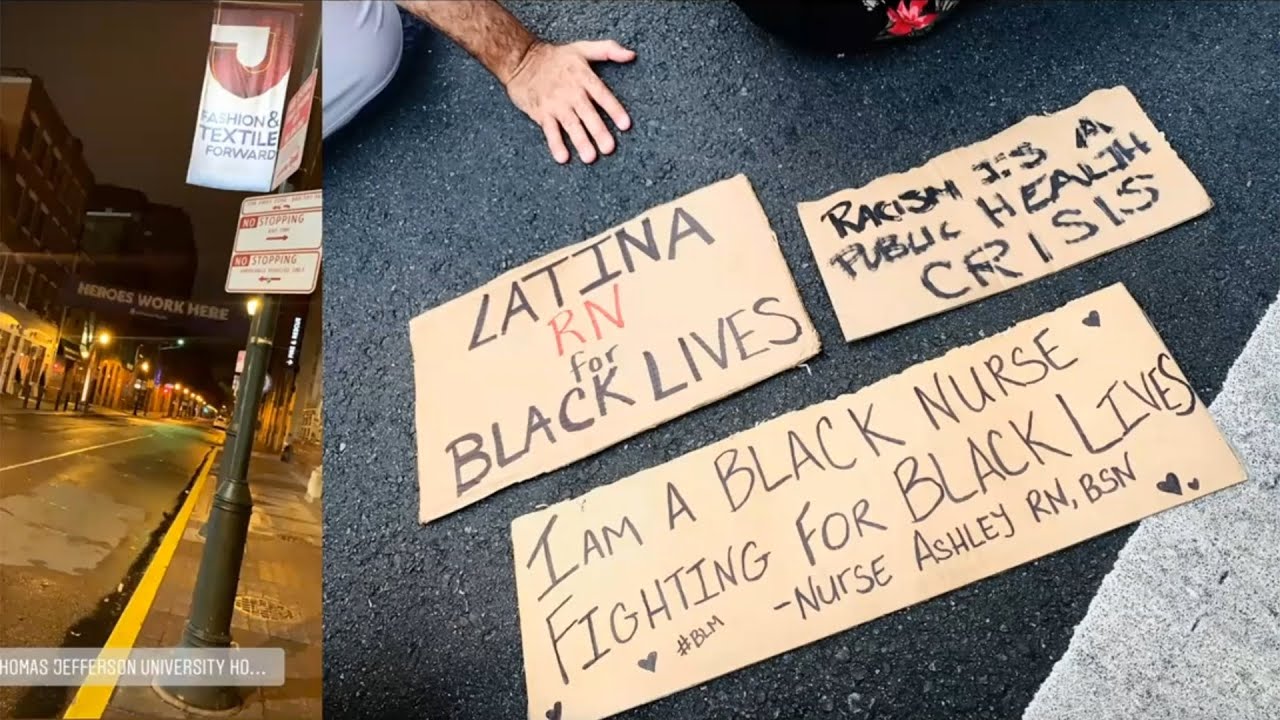 FASHION &
TEXTILE
FORWARD
NO STOPPING
NO STOPPING
HEROES WORK HERE
HOMAS JEFFERSON UNIVERSITY HO...
LATINA
RN
for
BLACK LIVES
RACISM IS A
PUBLIC HEALTH
CRISIS
I AM A BLACK NURSE
FIGHTING FOR BLACK LIVES
#BLM
-NURSE ASHLEY RN, BSN